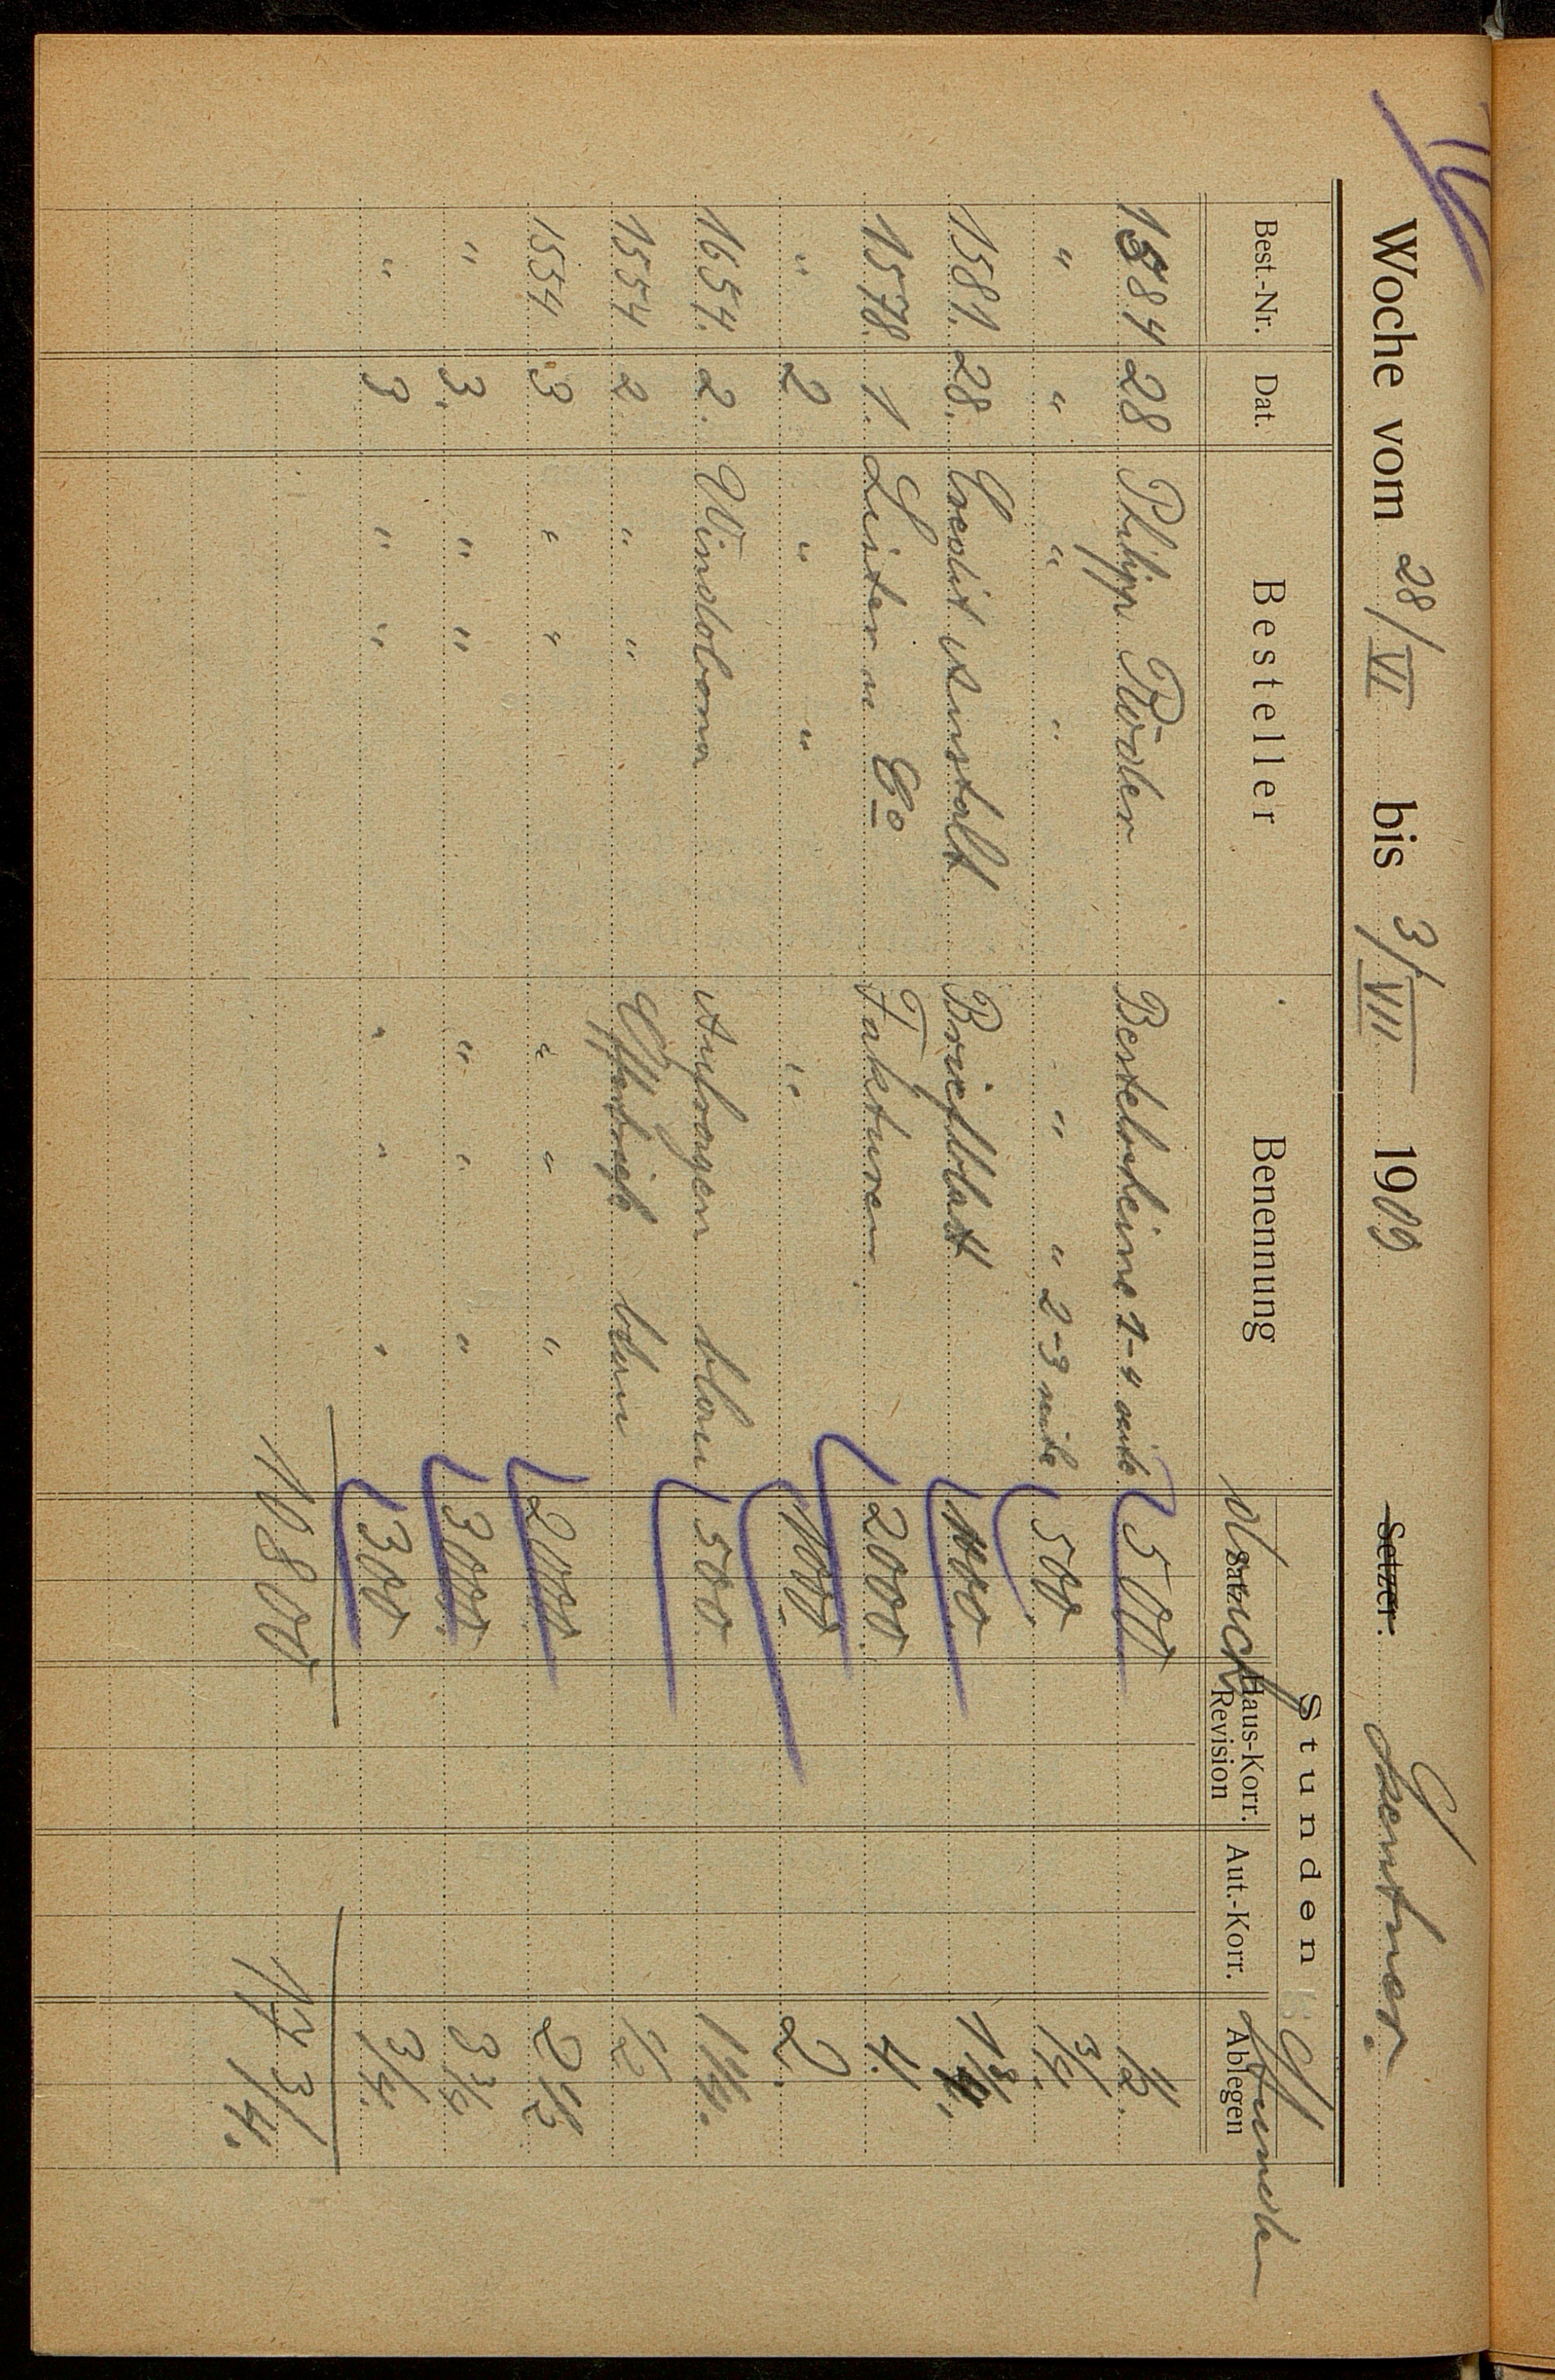 Woche vom 28/VI bis 3/VII 1909 Setzer
Best.-Nr. Dat. Besteller Benennung Stunden
Satz Haus-Korr. Revision Aut.-Korr. Ablegen
Druck Stunden
1584 28 Philipp Röder Bestelscheine 1-4 seite 500 1/2.
" " " " " " 2-3 seite 500. 3/4.
1581. 28. Credit Anstalt Briefblatt 1000
1578. 1. Lister u Co Fakturen. 2000. 4.
" 2 " " " 1000. 2.
1654. 2. Windobona Anfragen blau 500 1 1/4.
1554 2 " " blau 1/2
1554 3 " " " " " 2000 2 1/2
" 3. " " " " " 3000. 3 3/4
" 3 " " " " " 300 3/4.
10800 17 3/4.